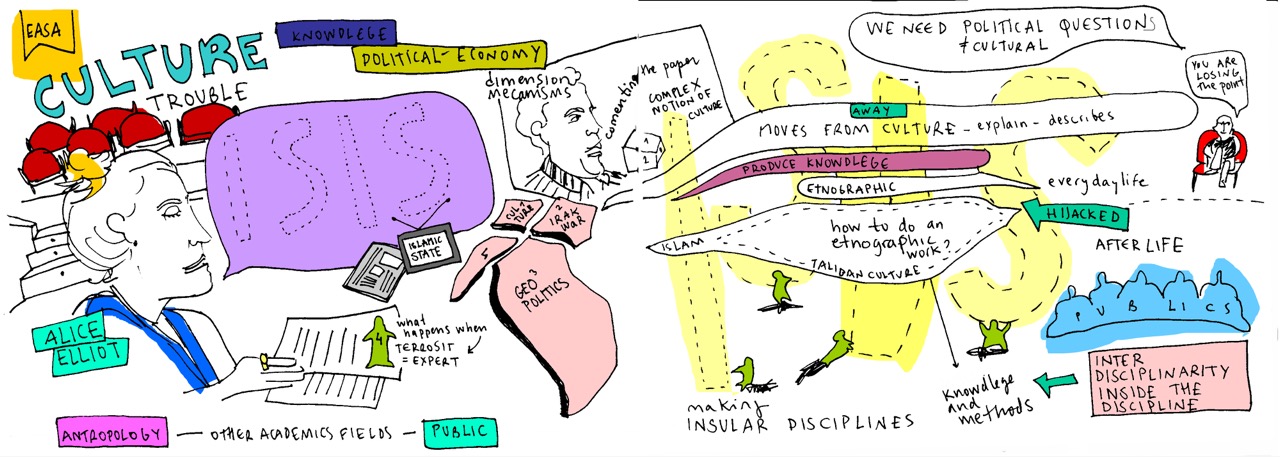 EASA
CULTURE
TROUBLE
KNOWDLEGE
POLITICAL-ECONOMY
ISIS
dimension
mecamisms
comenting
the paper
COMPLEX
NOTION OF
CULTURE
1
2
ISLAMIC
STATE
CUL 1
TURE
2
IRAK
WAR
GEO 3
POLITICS
ALICE
ELLIOT
4
what
happens when
TERROSIT
= EXPERT
ANTROPOLOGY — OTHER ACADEMICS FIELDS — PUBLIC
WE NEED POLITICAL QUESTIONS
≠ CULTURAL
YOU ARE
LOSING
the POINT
AWAY
MOVES FROM CULTURE - explain - describes
PRODUCE KNOWLEGE
ETNOGRAPHIC
everyday life
HIJACKED
ISLAM
how to do an
etnographic
work?
TALIDAN CULTURE
AFTER LIFE
PUBLICS
INTER
DISCIPLINARITY
INSIDE THE
DISCIPLINE
KNOWDLEGE
and
methods
making
INSULAR DISCIPLINES